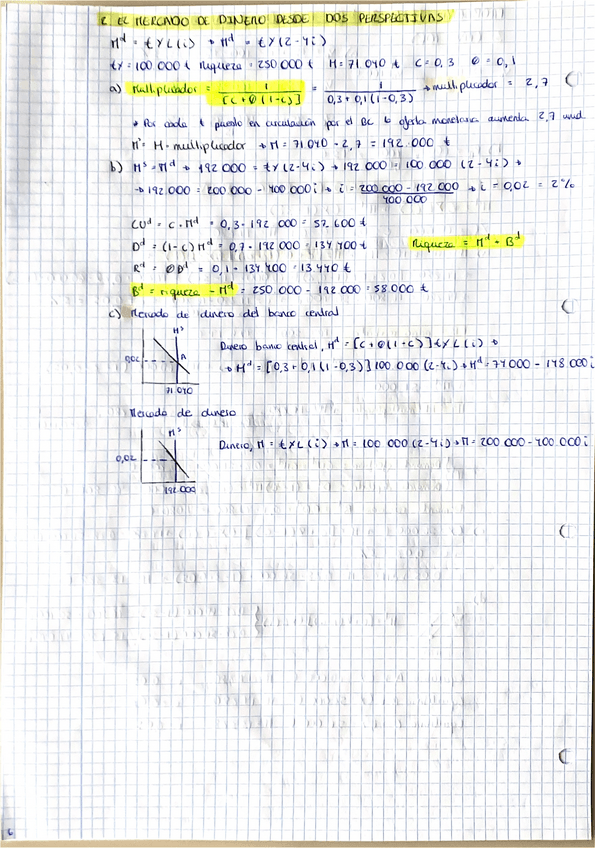 2. EL MERCADO DE DINERO DESDE DOS PERSPECTIVAS
M^d = €Y L(i) → M^d = €Y(2-4i)
€Y = 100 000 € Riqueza = 250 000 € H = 71 040 € C = 0,3 θ = 0,1
a) Multiplicador = 1 / [c + θ(1-c)] = 1 / 0,3 + 0,1(1-0,3) → multiplicador = 2,7
* Por cada € puesto en circulación por el BC la oferta monetaria aumenta 2,7 uud.
M^s = H · multiplicador → M = 71 040 · 2,7 = 192 000 €
b) M^s = M^d → 192 000 = €Y(2-4i) → 192 000 = 100 000 (2-4i) →
→ 192 000 = 200 000 - 400 000 i → i = 200 000 - 192 000 / 400 000 → i = 0,02 = 2%
CU^d = c · M^d = 0,3 · 192 000 = 57 600 €
D^d = (1-c) M^d = 0,7 · 192 000 = 134 400 € Riqueza = M^d + B^d
R^d = θD^d = 0,1 · 134 400 = 13 440 €
B^d = riqueza - M^d = 250 000 - 192 000 = 58 000 €
c) Mercado de dinero del banco central
H^s
Dinero banco central, H^d = [c + θ(1-c)] €Y L(i) →
0,02 A → H^d = [0,3 + 0,1(1-0,3)] 100 000 (2-4i) → H^d = 74 000 - 148 000 i
71 040
Mercado de dinero
M^s
0,02 Dinero, M = €Y L(i) → M = 100 000 (2-4i) → M = 200 000 - 400 000 i
192 000
6